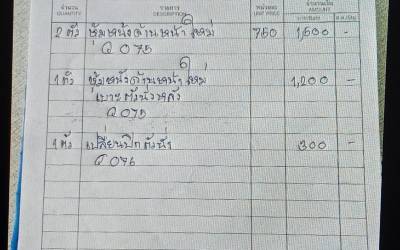 จำนวน รายการ หน่วยละ จำนวนเงิน
QUANTITY DESCRIPTION UNIT PRICE AMOUNT
2 ตัว หุ้มหนังด้านหน้าใหม่ 750 1,500 -
G 075
1 ตัว หุ้มหนังด้านหน้าใหม่ 1,200 -
เบาะตัวนั่งหลัง
G 075
1 ตัว เปลี่ยนปีกตัวนั่ง 300 -
G 076